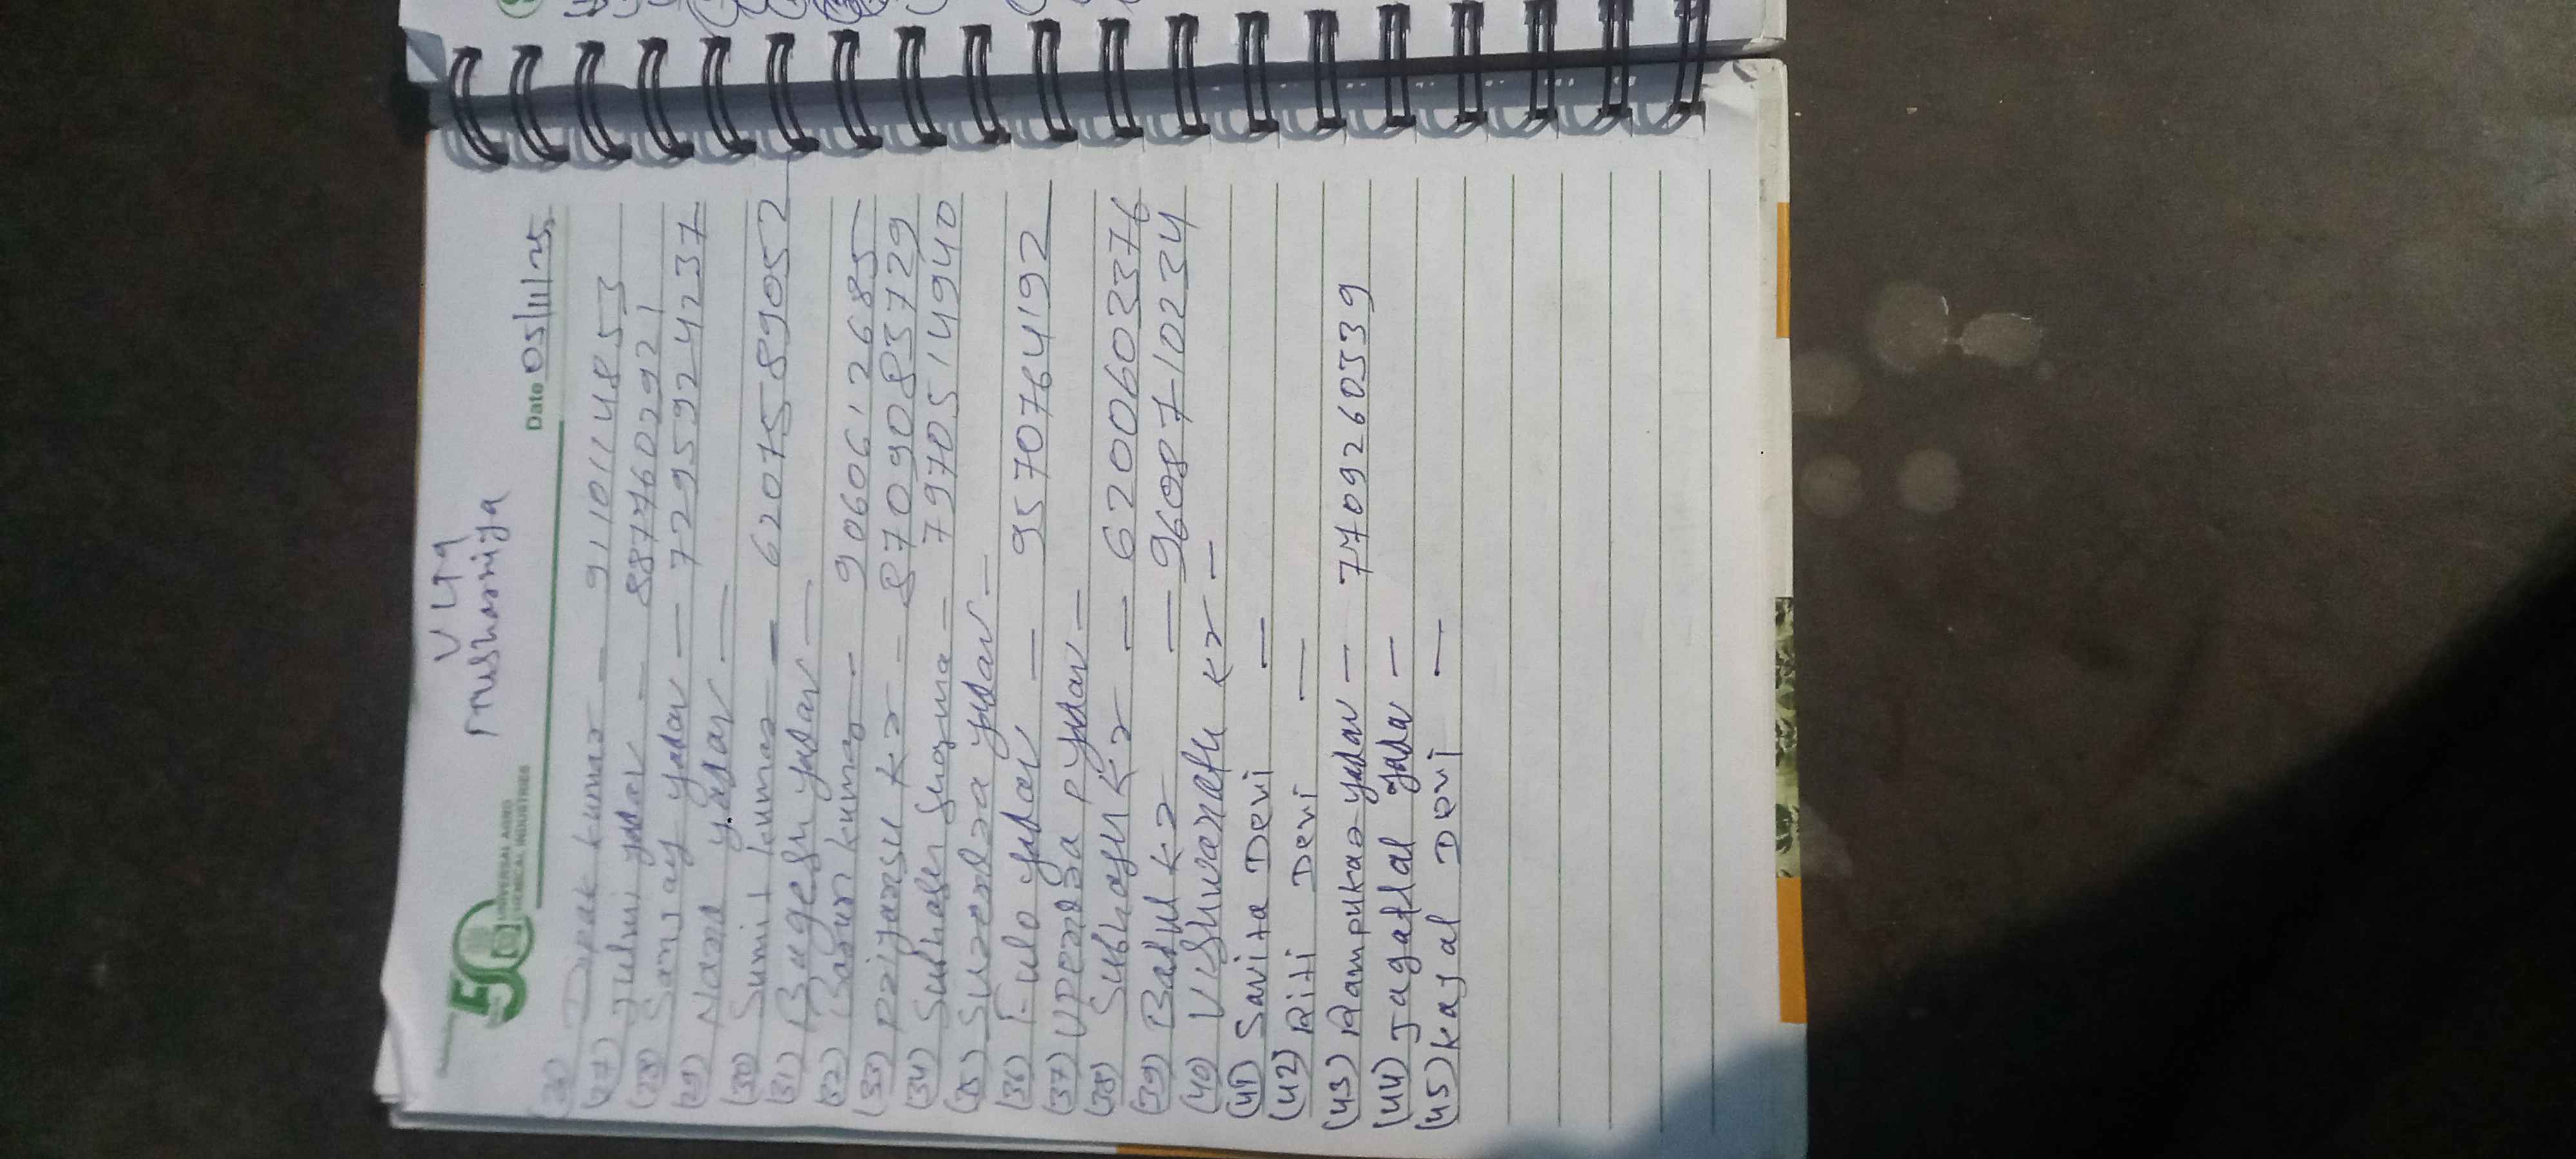 50
UNIVERSAL AGRO
CHEMICAL INDUSTRIES
Date 05/11/25
(26) Dipak kumar — 9110114853
(27) Juhi yadav — 8877602921
(28) Sanjay yadav — 7295924237
(29) Nand yadav —
(30) Sumit kumar — 6207589052
(31) Bagesh yadav —
(32) kumar — 9060612685
(33) Priyansu kr — 8709083729
(34) Subhash Sharma — 7970514940
(35) Surendra yadav —
(36) Fulo yadav — 9570764192
(37) Upendra P yadav —
(38) Subhash kr — 6200603376
(39) Babul kr — 9608710234
(40) Vishwanath kr —
(41) Savita Devi —
(42) Riti Devi —
(43) Rampukar yadav — 7709260339
(44) Jagatlal yadav —
(45) Kajal Devi —